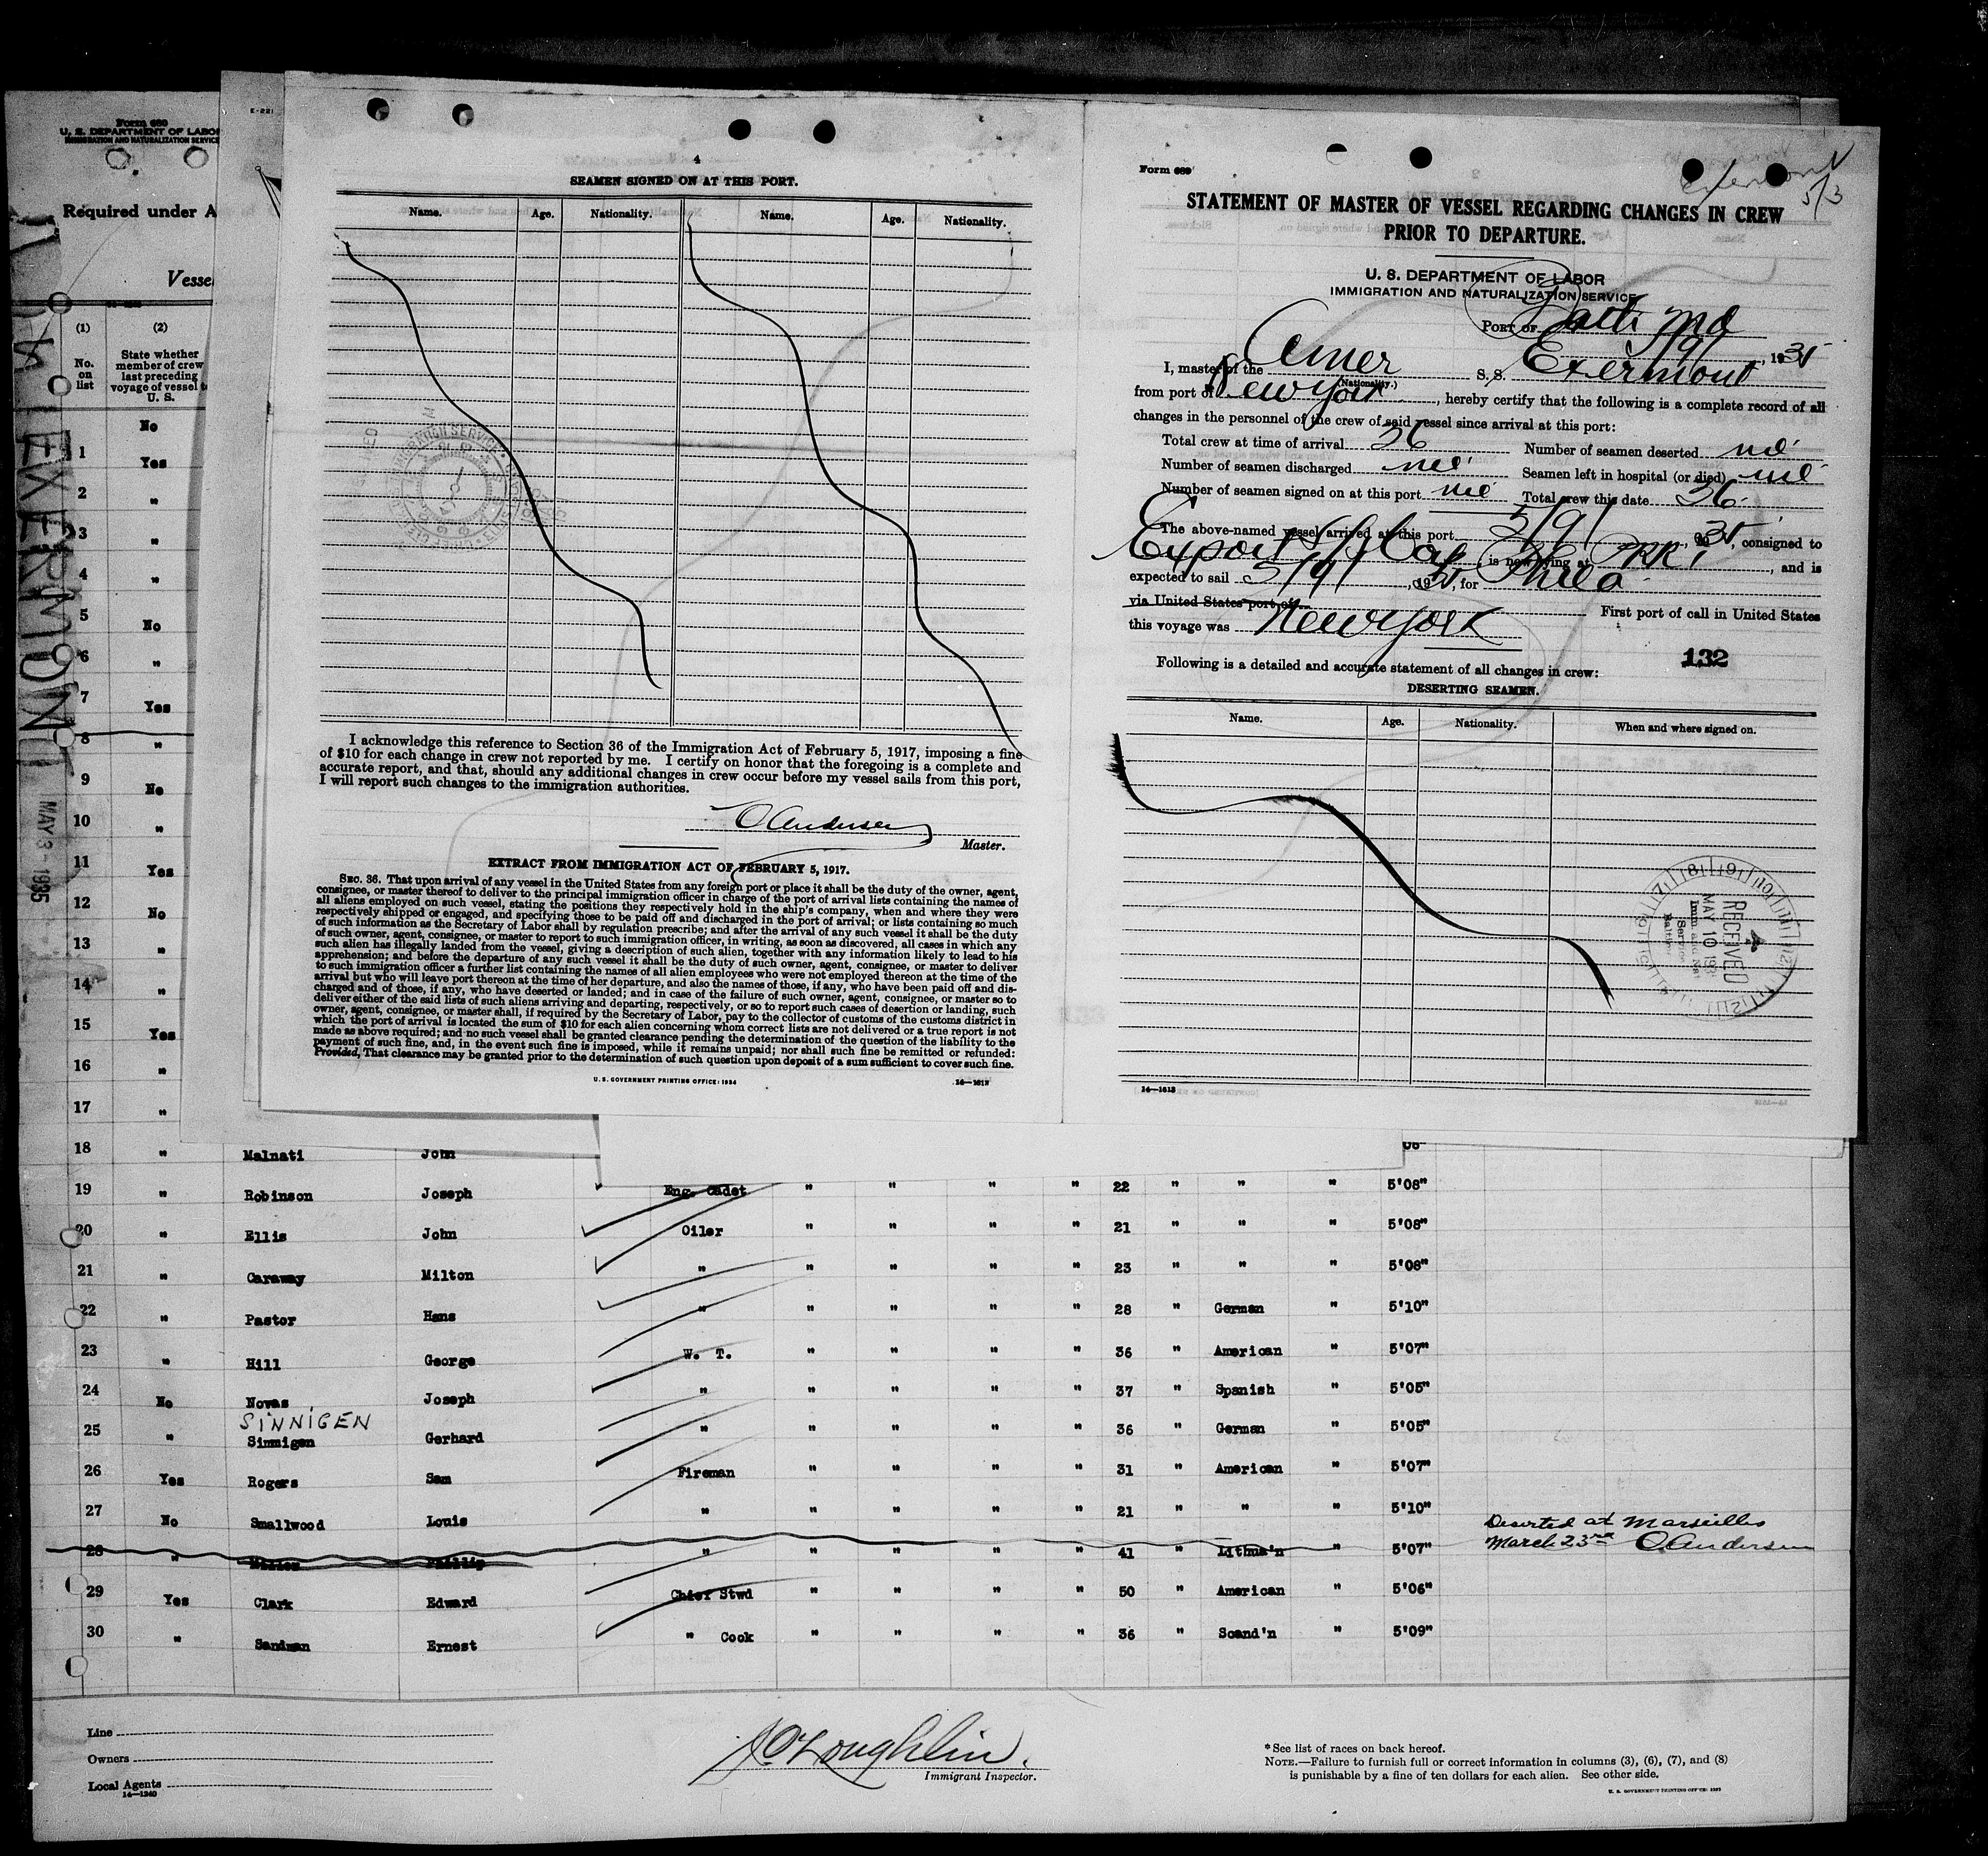 Form 680
U. S. DEPARTMENT OF LABOR
IMMIGRATION AND NATURALIZATION SERVICE
Required under A
Vessel
(1) (2)
No. on list
State whether member of crew last preceding voyage of vessel to U. S.
No
1 Yes
2 "
3 "
4 "
5 No
6 "
7 Yes
8 "
9 No
10 "
11 Yes
12 No
13 "
14 "
15 Yes
16 "
17 "
EXERMONT
MAY 3 - 1935
E-221
4
SEAMEN SIGNED ON AT THIS PORT.
Name. Age. Nationality. Name. Age. Nationality.
I acknowledge this reference to Section 36 of the Immigration Act of February 5, 1917, imposing a fine
of $10 for each change in crew not reported by me. I certify on honor that the foregoing is a complete and
accurate report, and that, should any additional changes in crew occur before my vessel sails from this port,
I will report such changes to the immigration authorities.
O Andersen
Master.
EXTRACT FROM IMMIGRATION ACT OF FEBRUARY 5, 1917.
SEC. 36. That upon arrival of any vessel in the United States from any foreign port or place it shall be the duty of the owner, agent,
consignee, or master thereof to deliver to the principal immigration officer in charge of the port of arrival lists containing the names of
all aliens employed on such vessel, stating the positions they respectively hold in the ship's company, when and where they were
respectively shipped or engaged, and specifying those to be paid off and discharged in the port of arrival; or lists containing so much
of such information as the Secretary of Labor shall by regulation prescribe; and after the arrival of any such vessel it shall be the duty
of such owner, agent, consignee, or master to report to such immigration officer, in writing, as soon as discovered, all cases in which any
such alien has illegally landed from the vessel, giving a description of such alien, together with any information likely to lead to his
apprehension; and before the departure of any such vessel it shall be the duty of such owner, agent, consignee, or master to deliver
to such immigration officer a further list containing the names of all alien employees who were not employed thereon at the time of the
arrival but who will leave port thereon at the time of her departure, and also the names of those, if any, who have been paid off and dis-
charged and of those, if any, who have deserted or landed; and in case of the failure of such owner, agent, consignee, or master so to
deliver either of the said lists of such aliens arriving and departing, respectively, or so to report such cases of desertion or landing, such
owner, agent, consignee, or master shall, if required by the Secretary of Labor, pay to the collector of customs of the customs district in
which the port of arrival is located the sum of $10 for each alien concerning whom correct lists are not delivered or a true report is not
made as above required; and no such vessel shall be granted clearance pending the determination of the question of the liability to the
payment of such fine, and, in the event such fine is imposed, while it remains unpaid; nor shall such fine be remitted or refunded:
Provided, That clearance may be granted prior to the determination of such question upon deposit of a sum sufficient to cover such fine.
U. S. GOVERNMENT PRINTING OFFICE: 1934 14—1513
Form 689
Exermont
5/3
STATEMENT OF MASTER OF VESSEL REGARDING CHANGES IN CREW
PRIOR TO DEPARTURE.
U. S. DEPARTMENT OF LABOR
IMMIGRATION AND NATURALIZATION SERVICE
PORT OF Balti Md
5/9/, 1935
I, master of the Amer S. S. Exermont
(Nationality.)
from port of New York, hereby certify that the following is a complete record of all
changes in the personnel of the crew of said vessel since arrival at this port:
Total crew at time of arrival 36 Number of seamen deserted nil
Number of seamen discharged nil Seamen left in hospital (or died) nil
Number of seamen signed on at this port nil Total crew this date 36
The above-named vessel arrived at this port 5/9/, 1935, consigned to
Export S/S Co, is now lying at PRR, and is
expected to sail 5/9/, 1935, for Phila
via United States port of First port of call in United States
this voyage was New York
132
Following is a detailed and accurate statement of all changes in crew:
DESERTING SEAMEN.
Name. Age. Nationality. When and where signed on.
RECEIVED
MAY 10 193
14—1513
18 " Malnati John
19 " Robinson Joseph Eng. Cadet " " " " 22 " " " 5'08"
20 " Ellis John Oiler " " " " 21 " " " 5'08"
21 " Caraway Milton " " " " " 23 " " " 5'08"
22 " Pastor Hans " " " " " 28 " German " 5'10"
23 " Hill George W. T. " " " " 36 " American " 5'07"
24 No Novas Joseph " " " " " 37 " Spanish " 5'05"
SINNIGEN
25 " Sinnigen Gerhard " " " " " 36 " German " 5'05"
26 Yes Rogers Sam Fireman " " " " 31 " American " 5'07"
27 No Smallwood Louis " " " " " 21 " " " 5'10"
Deserted at Marseilles
28 " Phillip " " " " " 41 " Lithua'n " 5'07" March 23rd O. Andersen
29 Yes Clark Edward Chief Stwd " " " " 50 " American " 5'06"
30 " Sandman Ernest " Cook " " " " 36 " Scand'n " 5'09"
Line
Owners
Local Agents
14—1240
J O'Loughlin.
Immigrant Inspector.
* See list of races on back hereof.
NOTE.—Failure to furnish full or correct information in columns (3), (6), (7), and (8)
is punishable by a fine of ten dollars for each alien. See other side.
U. S. GOVERNMENT PRINTING OFFICE: 1932